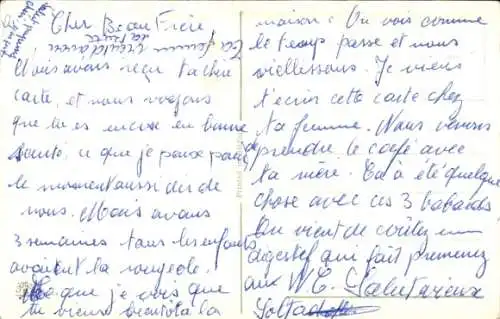 Cher Beau Frère
Nous avons reçu ta chère
carte, et nous voyons
que tu es encore en bonne
santé, ce que je peux pour
le moment aussi dire de
nous. Mais avons
3 semaines tous les enfants
avaient la rougeole.
que je vois que
tu viens bientôt à la
maison. On vois comme
le temps passe et nous
viellessons. Je viens
t'ecrire cette carte chez
ta femme. Nous venons
de prendre le café avec
ta mère. Ça a été quelque
chose avec ces 3 babards
On vient de goûter un
digestif qui fait promenez
aux W C. Salutations